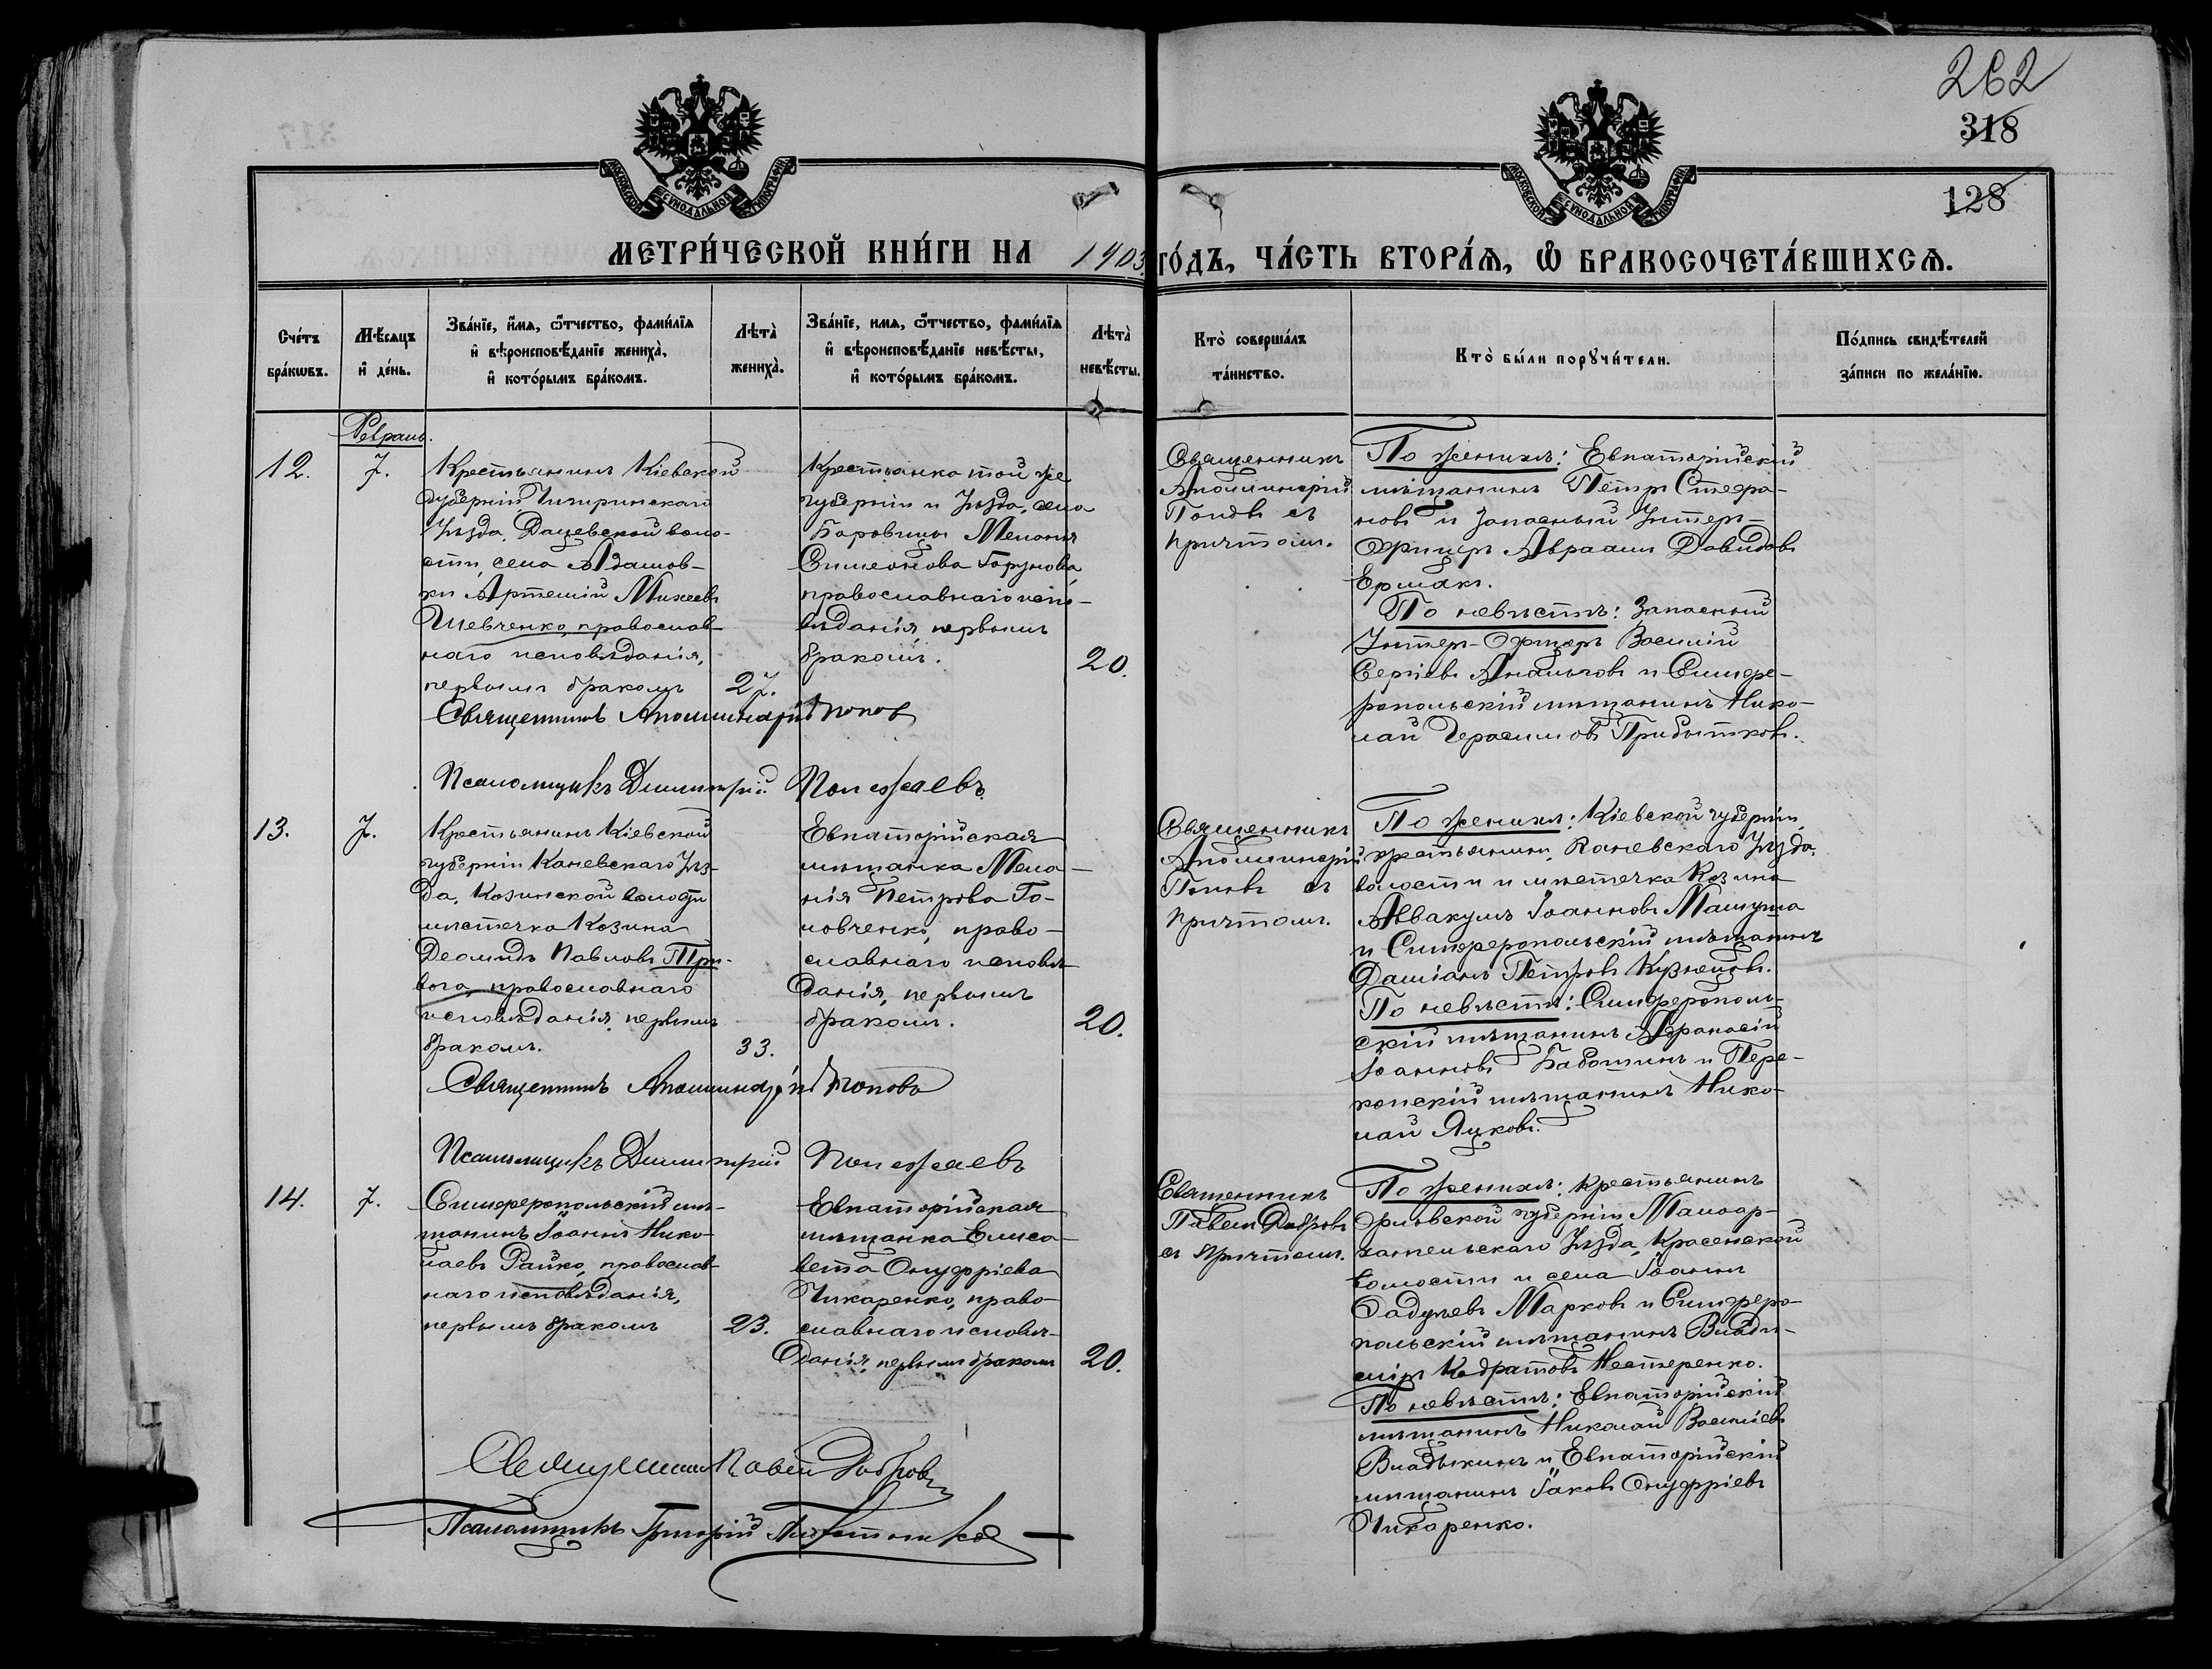 262
318
128
МОСКОВСКОЙ СУНОДАЛЬНОЙ ТИПОГРАФІИ
МОСКОВСКОЙ СУНОДАЛЬНОЙ ТИПОГРАФІИ
МЕТРИ́ЧЕСКОЙ КНИ́ГИ НА 1903 ГО́ДЪ, ЧА́СТЬ ВТОРА́Ѧ, Ѡ БРАКОСОЧЕТА́ВШИХСѦ.
Сче́тъ бра́кѡвъ.
Мѣ́сѧцъ и҆ де́нь.
Зва́нїе, и҆́мѧ, ѻ҆́тчество, фами́лїѧ и҆ вѣроисповѣ́данїе жениха̀, и҆ кото́рымъ бра́комъ.
Лѣта̀ жениха̀.
Зва́нїе, имѧ, ѻ҆́тчество, фами́лїѧ и҆ вѣроисповѣ́данїе невѣ́сты, и҆ кото́рымъ бра́комъ.
Лѣта̀ невѣ́сты.
Кто̀ соверша́лъ та́инство.
Кто̀ бы́ли порꙋчи́тели.
По́дпись свидѣ́телей за́писи по жела́нїю.
Февраль.
12.
7.
Крестьянинъ Кіевской
губерніи Чигиринскаго
Уѣзда, волo-
сти, села Адамов-
ки Артемій Михеевъ
Шевченко, православ-
наго исповѣданія,
первымъ бракомъ
27.
Крестьянка той же
губерніи и Уѣзда, села
Боровицы Меланія
Симеонова
православнаго испо-
вѣданія, первымъ
бракомъ.
20.
Священникъ
Аполлинарій
Поповъ съ
причтомъ.
По женихѣ: Евпаторійскій
мѣщанинъ Петръ Стефа-
новъ и Запасный Унтеръ-
Офицеръ Авраамъ Давидовъ
Ермакъ.
По невѣстѣ: Запасный
Унтеръ-Офицеръ Василій
Сергіевъ и Симфе-
ропольскій мѣщанинъ Нико-
лай Герасимовъ Прибытковъ.
Священникъ Аполлинарій Поповъ
Псаломщикъ Димитрій
13.
7.
Крестьянинъ Кіевской
губерніи Каневскаго Уѣз-
да, Козинской волости
мѣстечка Козина
Деомидъ Павловъ Три-
вога, православнаго
исповѣданія, первымъ
бракомъ.
33.
Евпаторійская
мѣщанка Мела-
нія Петрова Го-
ловченко, право-
славнаго исповѣ-
данія, первымъ
бракомъ.
20.
Священникъ
Аполлинарій
Поповъ съ
причтомъ.
По женихѣ: Кіевской губерніи
крестьянинъ, Каневскаго Уѣзда,
волости и мѣстечка Козина
Аввакумъ Іоанновъ
и Симферопольскій мѣщанинъ
Даміанъ Петровъ Кузнецовъ.
По невѣстѣ: Симферополь-
скій мѣщанинъ Афанасій
Іоанновъ и Пере-
копскій мѣщанинъ Нико-
лай Яцковъ.
Священникъ Аполлинарій Поповъ
Псаломщикъ Димитрій
14.
7.
Симферопольскій мѣ-
щанинъ Іоаннъ Нико-
лаевъ Райко, православ-
наго исповѣданія,
первымъ бракомъ
23.
Евпаторійская
мѣщанка Елиса-
вета Онуфріева
Чикаренко, право-
славнаго исповѣ-
данія, первымъ бракомъ
20.
Священникъ
Павелъ Добровъ
съ причтомъ.
По женихѣ: Крестьянинъ
Орловской губерніи Малоар-
хангельскаго Уѣзда, Красенской
волости и села Іоаннъ
Марковъ и Симферо-
польскій мѣщанинъ Влади-
міръ Кодратовъ Нестеренко.
По невѣстѣ: Евпаторійскій
мѣщанинъ Николай Василіевъ
Владыкинъ и Евпаторійскій
мѣщанинъ Іаковъ Онуфріевъ
Чикаренко.
Священникъ Павелъ Добровъ
Псаломщикъ Григорій